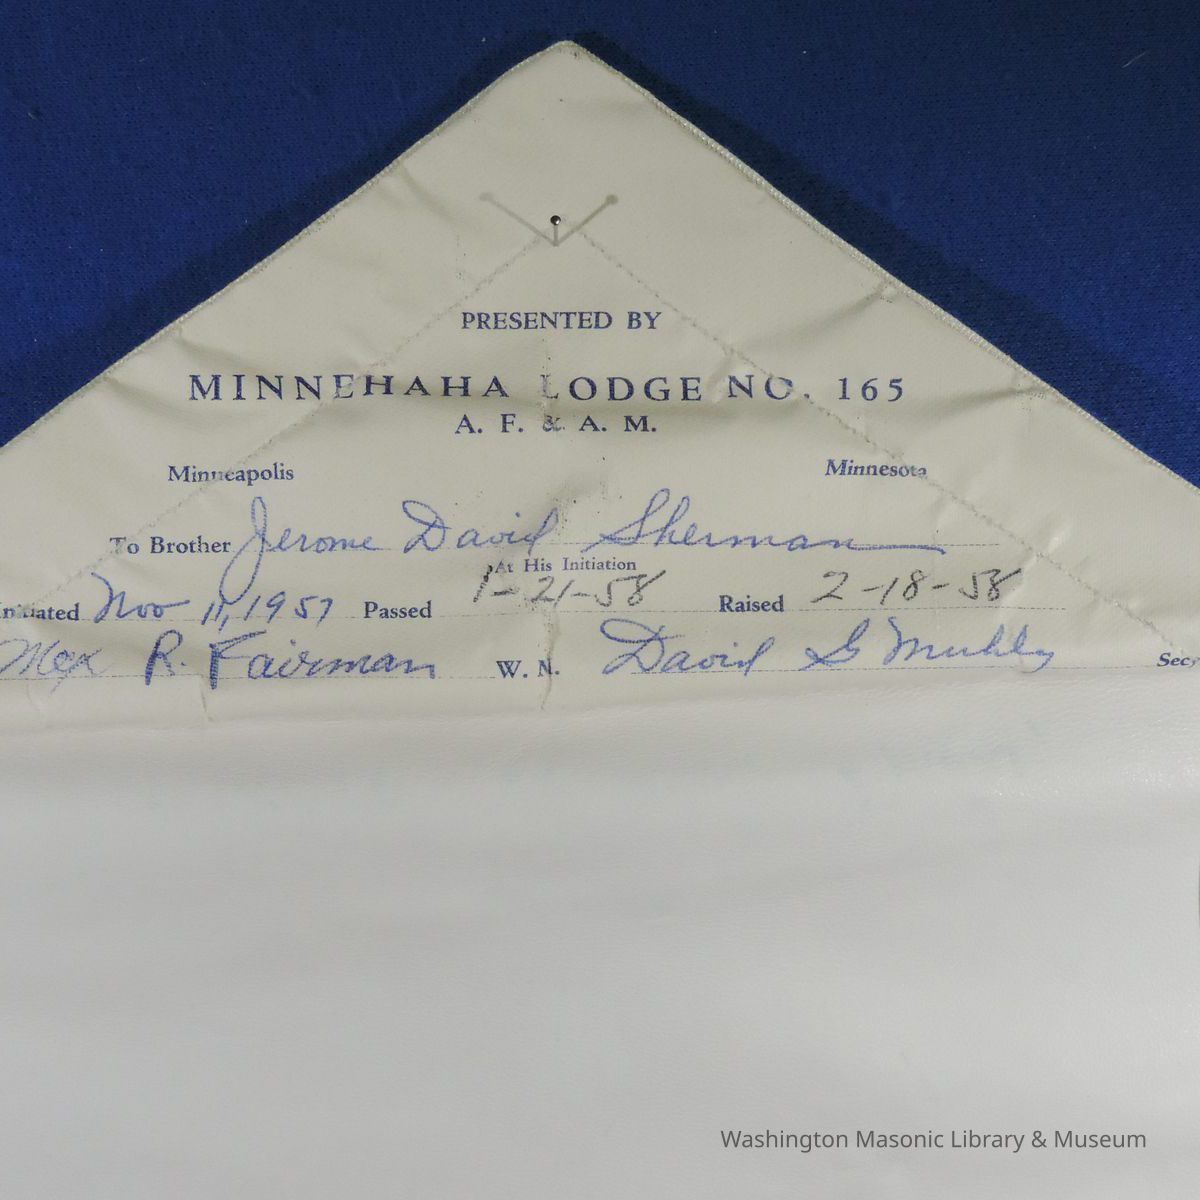 PRESENTED BY
MINNEHAHA LODGE NO. 165
A. F. & A. M.
Minneapolis Minnesota
To Brother Jerome David Sherman
At His Initiation
Initiated Nov 11, 1957 Passed 1-21-58 Raised 2-18-58
R. Fairman W. M. David G Secy
Washington Masonic Library & Museum